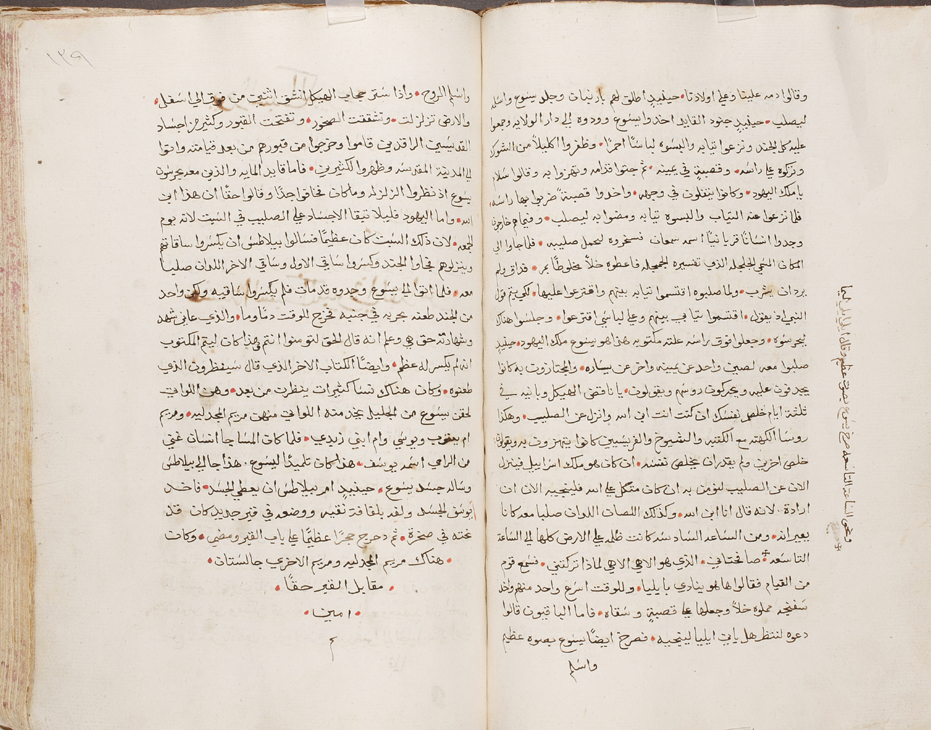 وقالوا دمه علينا وعلي اولادنا • حينيذ اطلق لهم بارنبان وجلد يسوع واسلمه
ليصلب • حينيذ جنود القايد اخدوا يسوع وودوه الي دار الولايه وجمعوا
عليه كل الجند ونزعوا تيابه والبسوه لباسًا احمرًا • وظفروا اكليلاً من الشوك
وتركوه علي راسه • وقصبة في يمينه • ثم جتوا قدامه وتهزوا به وقالوا سلام
يا ملك اليهود • وكانوا يتفلون في وجهه • واخدوا قصبة ضربوا بها راسه
فلما نزعوا عنه التياب والبسوه تيابه ومضوا به ليصلب • وفيما هم خارجون
وجدوا انسانًا قريانيًا اسمه سمعان فسخروه ليحمل صليبه • فلما جاوا الي
المكان المسمي الجلجله الدي تفسيره الجمجمه فاعطوه خلاً مخلوطًا بمر • فداق ولم
يرد ان يشرب • ولما صلبوه اقتسموا تيابه بينهم واقترعوا عليها • لكي يتم قول
النبي اد يقول • اقتسموا تيابي بينهم وعلي لباسي اقترعوا • وجلسوا هناك
يحرسوه • وجعلوا فوق راسه علته مكتوبه هدا هو يسوع ملك اليهود • حينيذ
صلبوا معه لصين واحد عن يمينه واخر عن يساره • والمجتازون به كانوا
يجدفون عليه ويحركون روسهم ويقولون • يا ناقض الهيكل وبانيه في
ثلثة ايام خلص نفسك ان كنت انت ابن الله وانزل عن الصليب • وهكدا
روسا الكهنه مع الكتبه والشيوخ والفريسيين كانوا يتهزون به ويقولون
خلص اخرين ولم يقدر ان يخلص نفسه • ان كان هو ملك اسراييل فينزل
الان عن الصليب لنومن به ان كان متكل علي الله فلينجيه الان ان
اراده • لانه قال انا ابن الله • وكدلك اللصان اللدان صلبا معه كانا
يعيرانه • ومن الساعه السادسه كانت ظلمه علي الارض كلها الي الساعه
التاسعه • صاقحتاني • الدي هو الاهي الاهي لمادا تركتني • فسمع قوم
من القيام فقالوا ها هو ينادي بايليا • وللوقت اسرع واحد منهم واخد
سفنجه مملوه خلاً وجعلها علي قصبة وسقاه • فاما الباقيون قالوا
دعوه لننظر هل ياتي ايليا لينجيه • فصرخ ايضًا يسوع بصوه عظيم
واسلم
ونحو الساعة التاسعه صرخ يسوع بصوت عظيم وقال ايلي ايلي ليما
١٢٩
واسلم الروح • وادا ستر حجاب الهيكل انشق اثنين من فوق الي اسفل
والارض تزلزلت • وتشققت الصخور • وتفتحت القبور وكثير من اجساد
القديسين الراقدين قاموا وخرجوا من قبورهم من بعد قيامته واتوا
الي المدينة المقدسه وظهروا لكثيرين • فاما قايد المايه والدين معه يحرسون
يسوع اذ نظروا الزلزله وما كان فخافوا جدًا وقالوا حقًا ان هدا ابن
الله • واما اليهود فليلا تبقا الاجساد علي الصليب في السبت لانه يوم
الجمعه • لان دلك السبت كان عظيمًا فسالوا بيلاطس ان يكسروا ساقاتهم
وينزلوهم فجاوا الجند وكسروا ساقي الاول وساقي الاخر اللدان صلبا
معه • فلما اتوا الي يسوع وجدوه قد مات فلم يكسروا ساقيه ولكن واحد
من الجند طعنه بحربه في جنبه فخرج للوقت دمًا وما • والدي عاين شهد
وشهادته حق هي وعلم انه قال الحق لتومنوا انتم هدا كان ليتم المكتوب
انه لم يكسر له عظم • وايضًا الكتاب الاخر الدي قال سينظرون الدي
طعنوه • وكان هناك نسا كثيرات ينظرن من بعد • وهن اللواتي
لحقن يسوع من الجليل يخدمنه اللواتي منهن مريم المجدليه • ومريم
ام يعقوب ويوسي وام ابني زبدي • فلما كان المسا جا انسان غني
من الرامي اسمه يوسف • هدا كان تلميدًا ليسوع • هدا جا الي بيلاطس
وساله جسد يسوع • حينيذ امر بيلاطس ان يعطي الجسد • فاخد
يوسف الجسد ولفه بلفافة نقيه ووضعه في قبر جديد كان قد
نحته في صخرة • ثم دحرج حجرًا عظيمًا علي باب القبر ومضي • وكان
• هناك مريم المجدليه ومريم الاخري جالستان •
• مقابل القبر حقًا •
• امين •